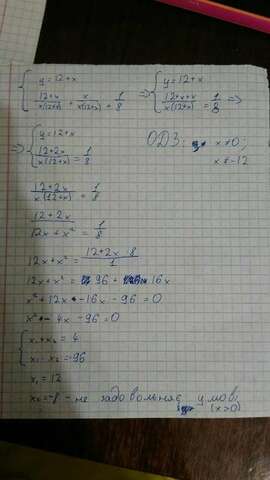 { y = 12 + x => { y = 12 + x
{ 12+x/x(12+x) + x/x(12+x) = 1/8 { 12+x+x/x(12+x) = 1/8 =>
=> { y = 12 + x ОДЗ: x ≠ 0;
{ 12+2x/x(12+x) = 1/8 x ≠ -12
12+2x/x(12+x) = 1/8
12+2x/12x+x² = 1/8
12x+x² = (12+2x)·8/1
12x+x² = 96 + 16x
x² + 12x - 16x - 96 = 0
x² - 4x - 96 = 0
{ x₁ + x₂ = 4
{ x₁ · x₂ = -96
x₁ = 12
x₂ = -8 - не задовольняє умові
(x>0)